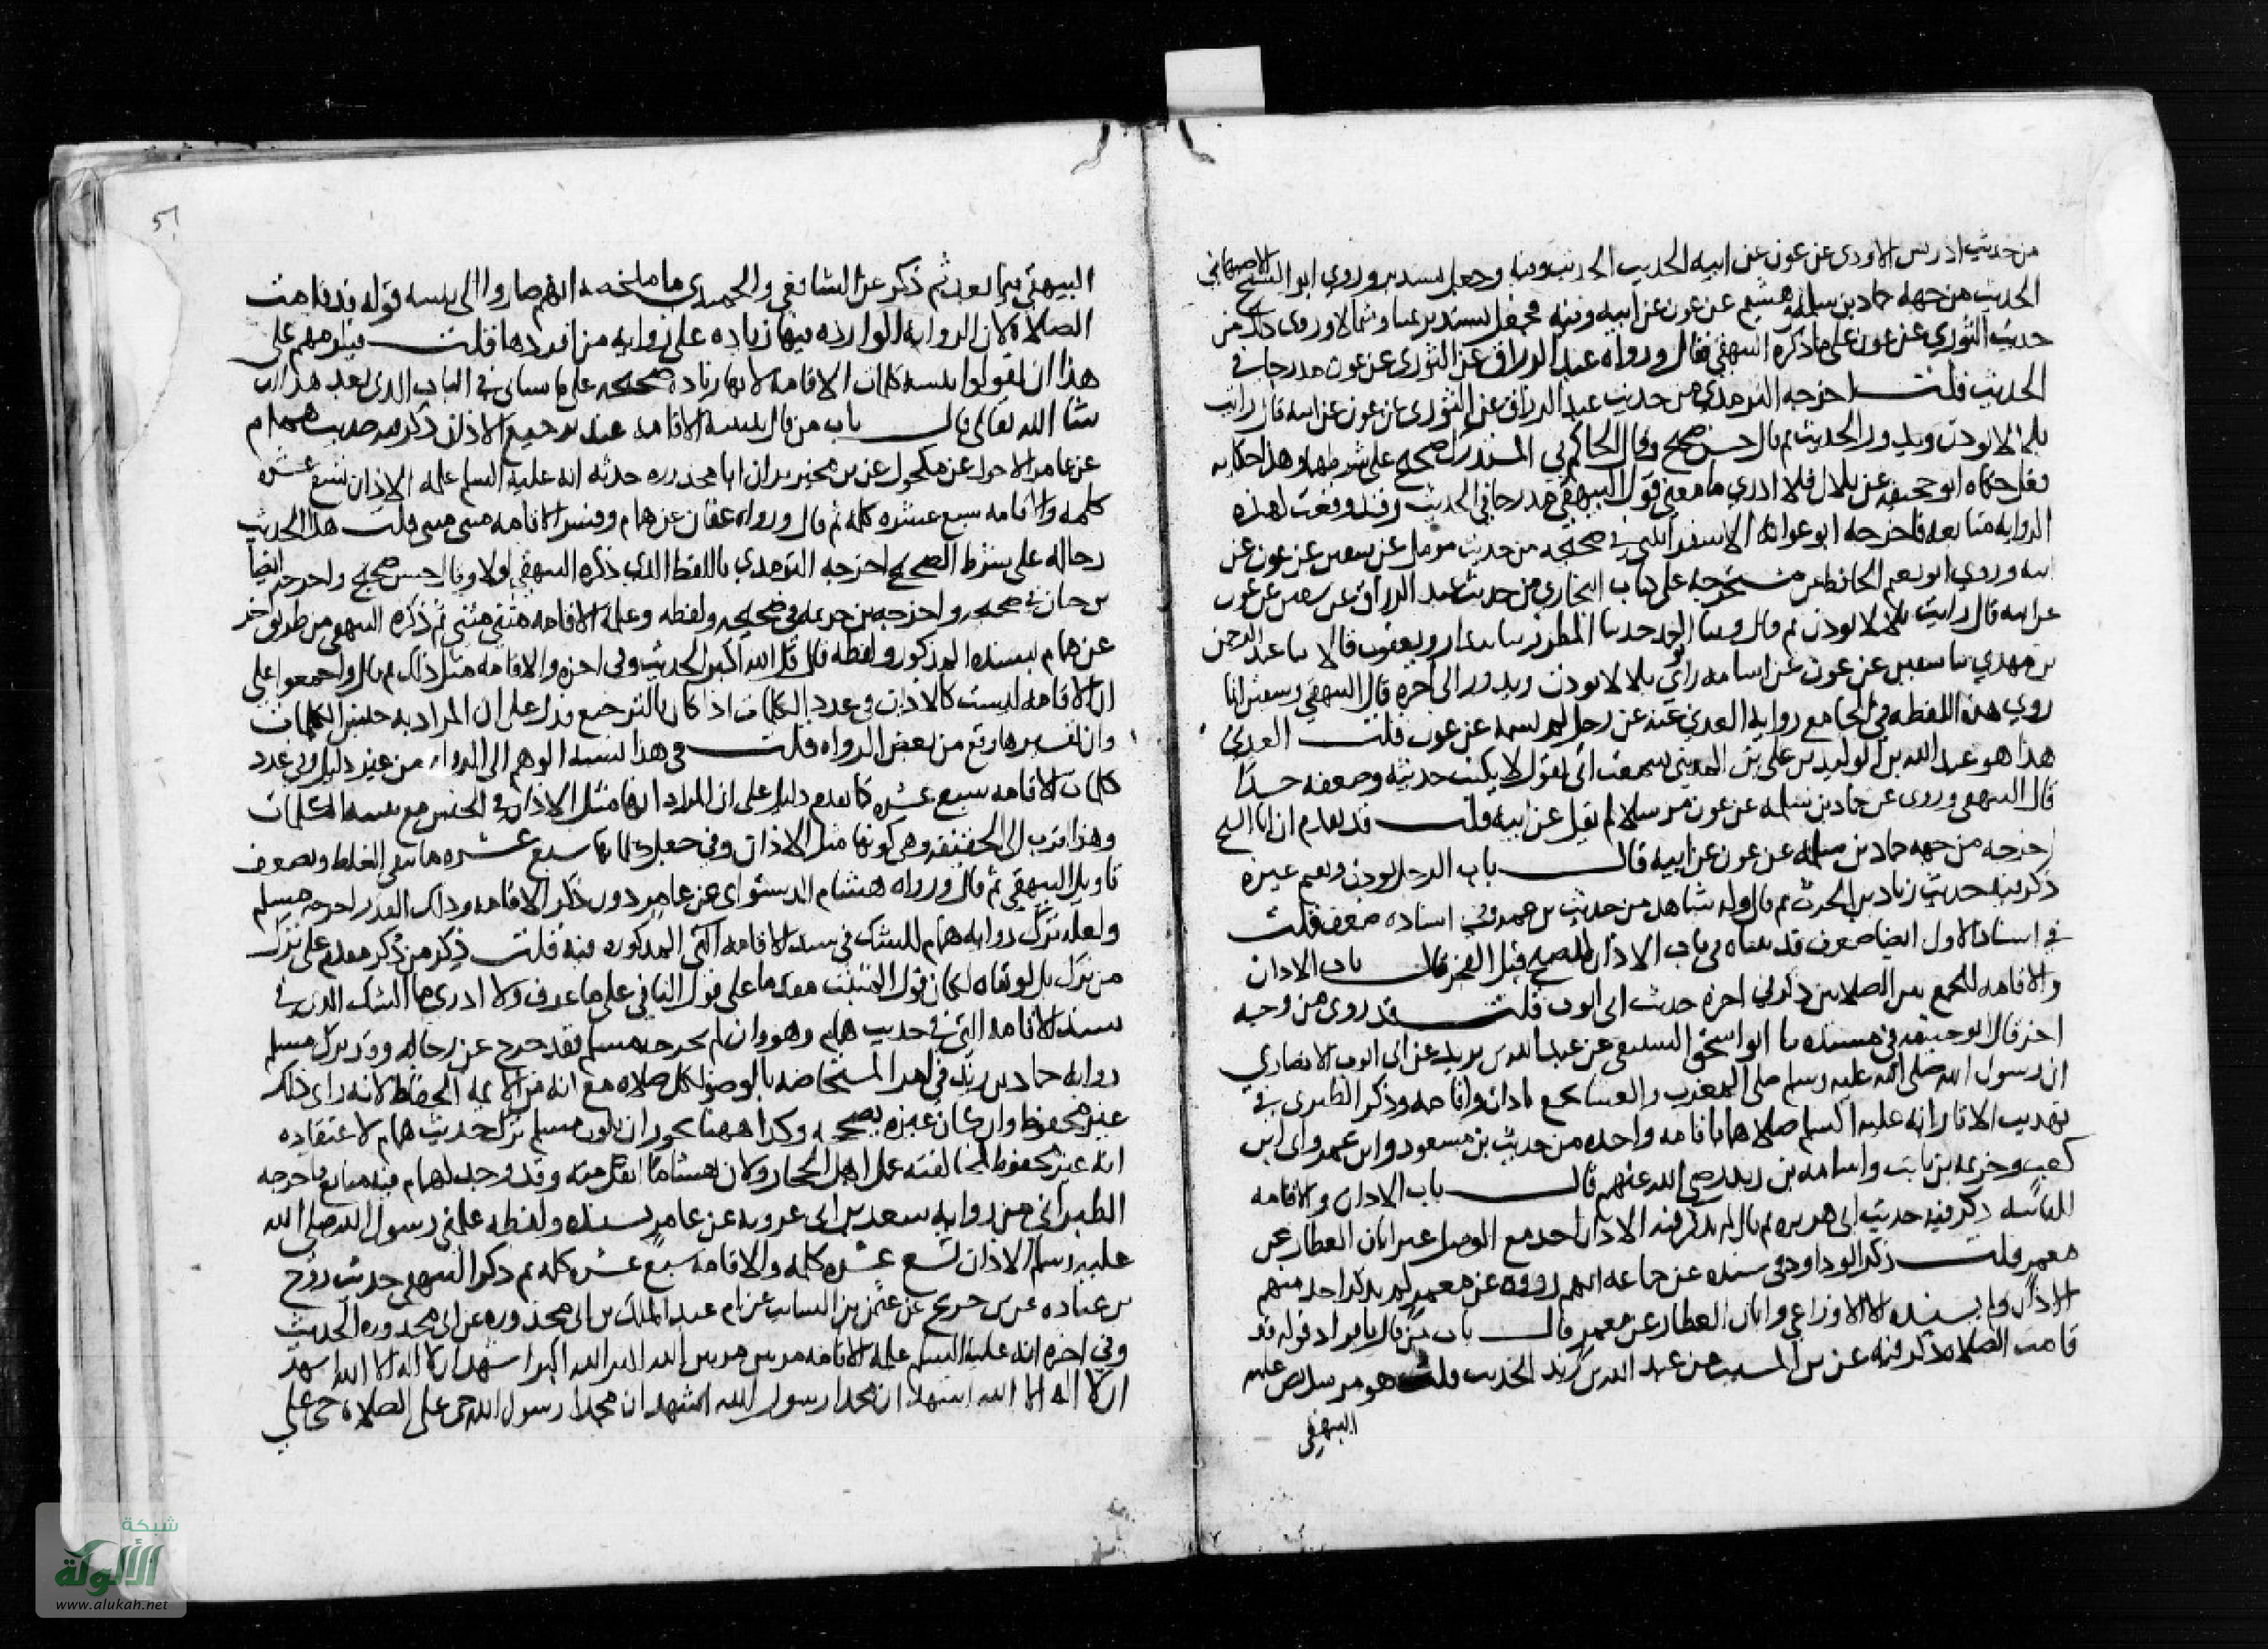 من حديث ادريس الاودي عن عون عن ابيه الحديث وفيه وجعل يستدير وروى ابو الشيخ الاصبهاني
الحديث من جهة حماد بن سلمة وهشيم عن عون عن ابيه وفيه فجعل يستدير يمينا وشمالا وروى ذلك من
حديث الثوري عن عون على ما ذكره البيهقي فقال ورواه عبد الرزاق عن الثوري عن عون مدرجا في
الحديث قلت اخرجه الترمذي من حديث عبد الرزاق عن الثوري عن عون عن ابيه قال رايت
بلالا يوذن ويدور الحديث ثم قال حسن صحيح وقال الحاكم في المستدرك صحيح على شرطهما وهذا حكاية
فعل حكاه ابو جحيفة عن بلال فلا ادري ما معنى قول البيهقي مدرجا في الحديث وقد وقعت لهذه
الرواية متابعة فاخرجه ابو عوانة الاسفرائني في صحيحه من حديث مومل عن سفين عن عون عن
ابيه وروى ابو نعيم الحافظ في مستخرجه على كتاب البخاري من حديث عبد الرزاق عن سفين عن عون
عن ابيه قال رايت بلالا يوذن ثم قال وحدثنا ابو احمد حدثنا المطرز ثنا بندار ويعقوب قالا ثنا عبد الرحمن
بن مهدي ثنا سفين عن عون عن ابيه انه راى بلالا يوذن ويدور الى اخره قال البيهقي وسفين انما
روى هذه اللفظة في الجامع رواية العدني عنه عن رجل لم يسمه عن عون قلت العدني
هذا هو عبد الله بن الوليد بن علي بن المديني سمعت ابي يقول لا يكتب حديثه وضعفه جدا
قال البيهقي وروى عن حماد بن سلمة عن عون مرسلا لم يقل عن ابيه قلت قد تقدم ان ابا الشيخ
اخرجه من جهة حماد بن سلمة عن عون عن ابيه قال باب الرجل يوذن ويقيم غيره
ذكر فيه حديث زياد بن الحرث ثم قال وله شاهد من حديث بن عمر وفي اسناده ضعف قلت
في اسناد الاول ايضا ضعف قد بيناه في باب الاذان للصبح قبل الفجر قال باب الاذان
والاقامة للجمع بين الصلاتين ذكر في اخره حديث ابي ايوب قلت قد روى من وجه
اخر قال ابو حنيفة في مسنده ثنا ابو اسحق السبيعي عن عبد الله بن يزيد عن ابي ايوب الانصاري
ان رسول الله صلى الله عليه وسلم صلى المغرب والعشا بجمع باذان واقامة وذكر الطبري في
تهذيب الاثار انه عليه السلم صلاهما باقامة واحدة من حديث بن مسعود وابن عمر وابي ابن
كعب وخزيمة بن ثابت واسامة بن زيد رضي الله عنهم قال باب الاذان والاقامة
للفائتة ذكر فيه حديث ابي هريرة ثم قال لم يذكر فيه الاذان احد مع الوصل غير ابان العطار عن
معمر قلت ذكر ابو داود في سننه عن جماعة انهم رووه عن معمر لم يذكر احد منهم
الاذان ولم يسنده الا الاوزاعي وابان العطار عن معمر قال باب من قال بافراد قوله قد
قامت الصلاة ذكر فيه عن بن المسيب عن عبد الله بن زيد الحديث قلت هو مرسل نص عليه
البيهقي
البيهقي فيما بعد ثم ذكر عن الشافعي والحميدي ما ملخصه انهم صاروا الى تثنية قوله قد قامت
الصلاة لان الرواية الواردة فيها زيادة على رواية من افردها قلت فيلزمهم على
هذا ان يقولوا بتثنية كلمات الاقامة لانها زيادة صحيحة على ما سياتي في الباب الذي بعد هذا ان
شا الله تعالى قال باب من قال بتثنية الاقامة عند ترجيع الاذان ذكر فيه حديث همام
عن عامر الاحول عن مكحول عن بن محيريز ان ابا محذورة حدثه انه عليه السلم علمه الاذان تسع عشرة
كلمة والاقامة سبع عشرة كلمة ثم قال ورواه عفان عن همام وفسر الاقامة مثنى مثنى قلت هذا الحديث
رجاله على شرط الصحيح اخرجه الترمذي باللفظ الذي ذكره البيهقي اولا وقال حسن صحيح واخرجه ايضا
بن حبان في صحيحه واخرجه بن خزيمة في صحيحه ولفظه وعلمه الاقامة مثنى مثنى ثم ذكره البيهقي من طريق اخر
عن همام بسنده المذكور ولفظه قال قل الله اكبر الحديث وفي اخره والاقامة مثل ذلك ثم قال واجمعوا على
ان الاقامة ليست كالاذان في عدد الكلمات اذا كان بالترجيع فدل على ان المراد به جنس الكلمات
وان تفسيرها وقع من بعض الرواة قلت في هذا نسبة الوهم الى الرواة من غير دليل وفي عدد
كلمات الاقامة سبع عشرة كما تقدم دليل على ان المراد انها مثل الاذان في الجنس مع تثنية الكلمات
وهذا اقرب الى الحقيقة وهي كونها مثل الاذان وفي جعل كلماتها سبع عشرة ما ينفي الغلط ويضعف
تاويل البيهقي ثم قال ورواه هشام الدستواي عن عامر دون ذكر الاقامة وذلك القدر اخرجه مسلم
ولعله ترك رواية همام للشك في سند الاقامة التي المذكورة فيه قلت ذكر من ذكر مقدم على ترك
من ترك بل لو نفاه لكان قول المثبت مقدما على قول النافي على ما عرف ولا ادري ما الشك الذي في
سند الاقامة التي في حديث همام وهو وان لم يخرجه مسلم فقد خرج عن رجاله وقد ترك مسلم
رواية حماد بن زيد في امر المستحاضة بالوضو لكل صلاة مع انه من الايمة الحفاظ لانه راى ذلك
غير محفوظ وان كان غيره يصححه وكذا ههنا يجوز ان يكون مسلم ترك حديث همام لاعتقاده
انه غير محفوظ لمخالفته عمل اهل الحجاز وكان هشاما اتقن منه وقد وجد لهمام فيه متابع فاخرجه
الطبراني من رواية سعيد بن ابي عروبة عن عامر بسنده ولفظه علمني رسول الله صلى الله
عليه وسلم الاذان تسع عشرة كلمة والاقامة سبع عشرة كلمة ثم ذكر البيهقي حديث روح
بن عبادة عن بن جريج عن عثمن بن السايب عن ام عبد الملك بن ابي محذورة عن ابي محذورة الحديث
وفي اخره انه عليه السلم علمه الاقامة مرتين مرتين الله اكبر الله اكبر اشهد ان لا اله الا الله اشهد
ان لا اله الا الله اشهد ان محمدا رسول الله اشهد ان محمدا رسول الله حي على الصلاة حي على
شبكة
الألوكة
www.alukah.net